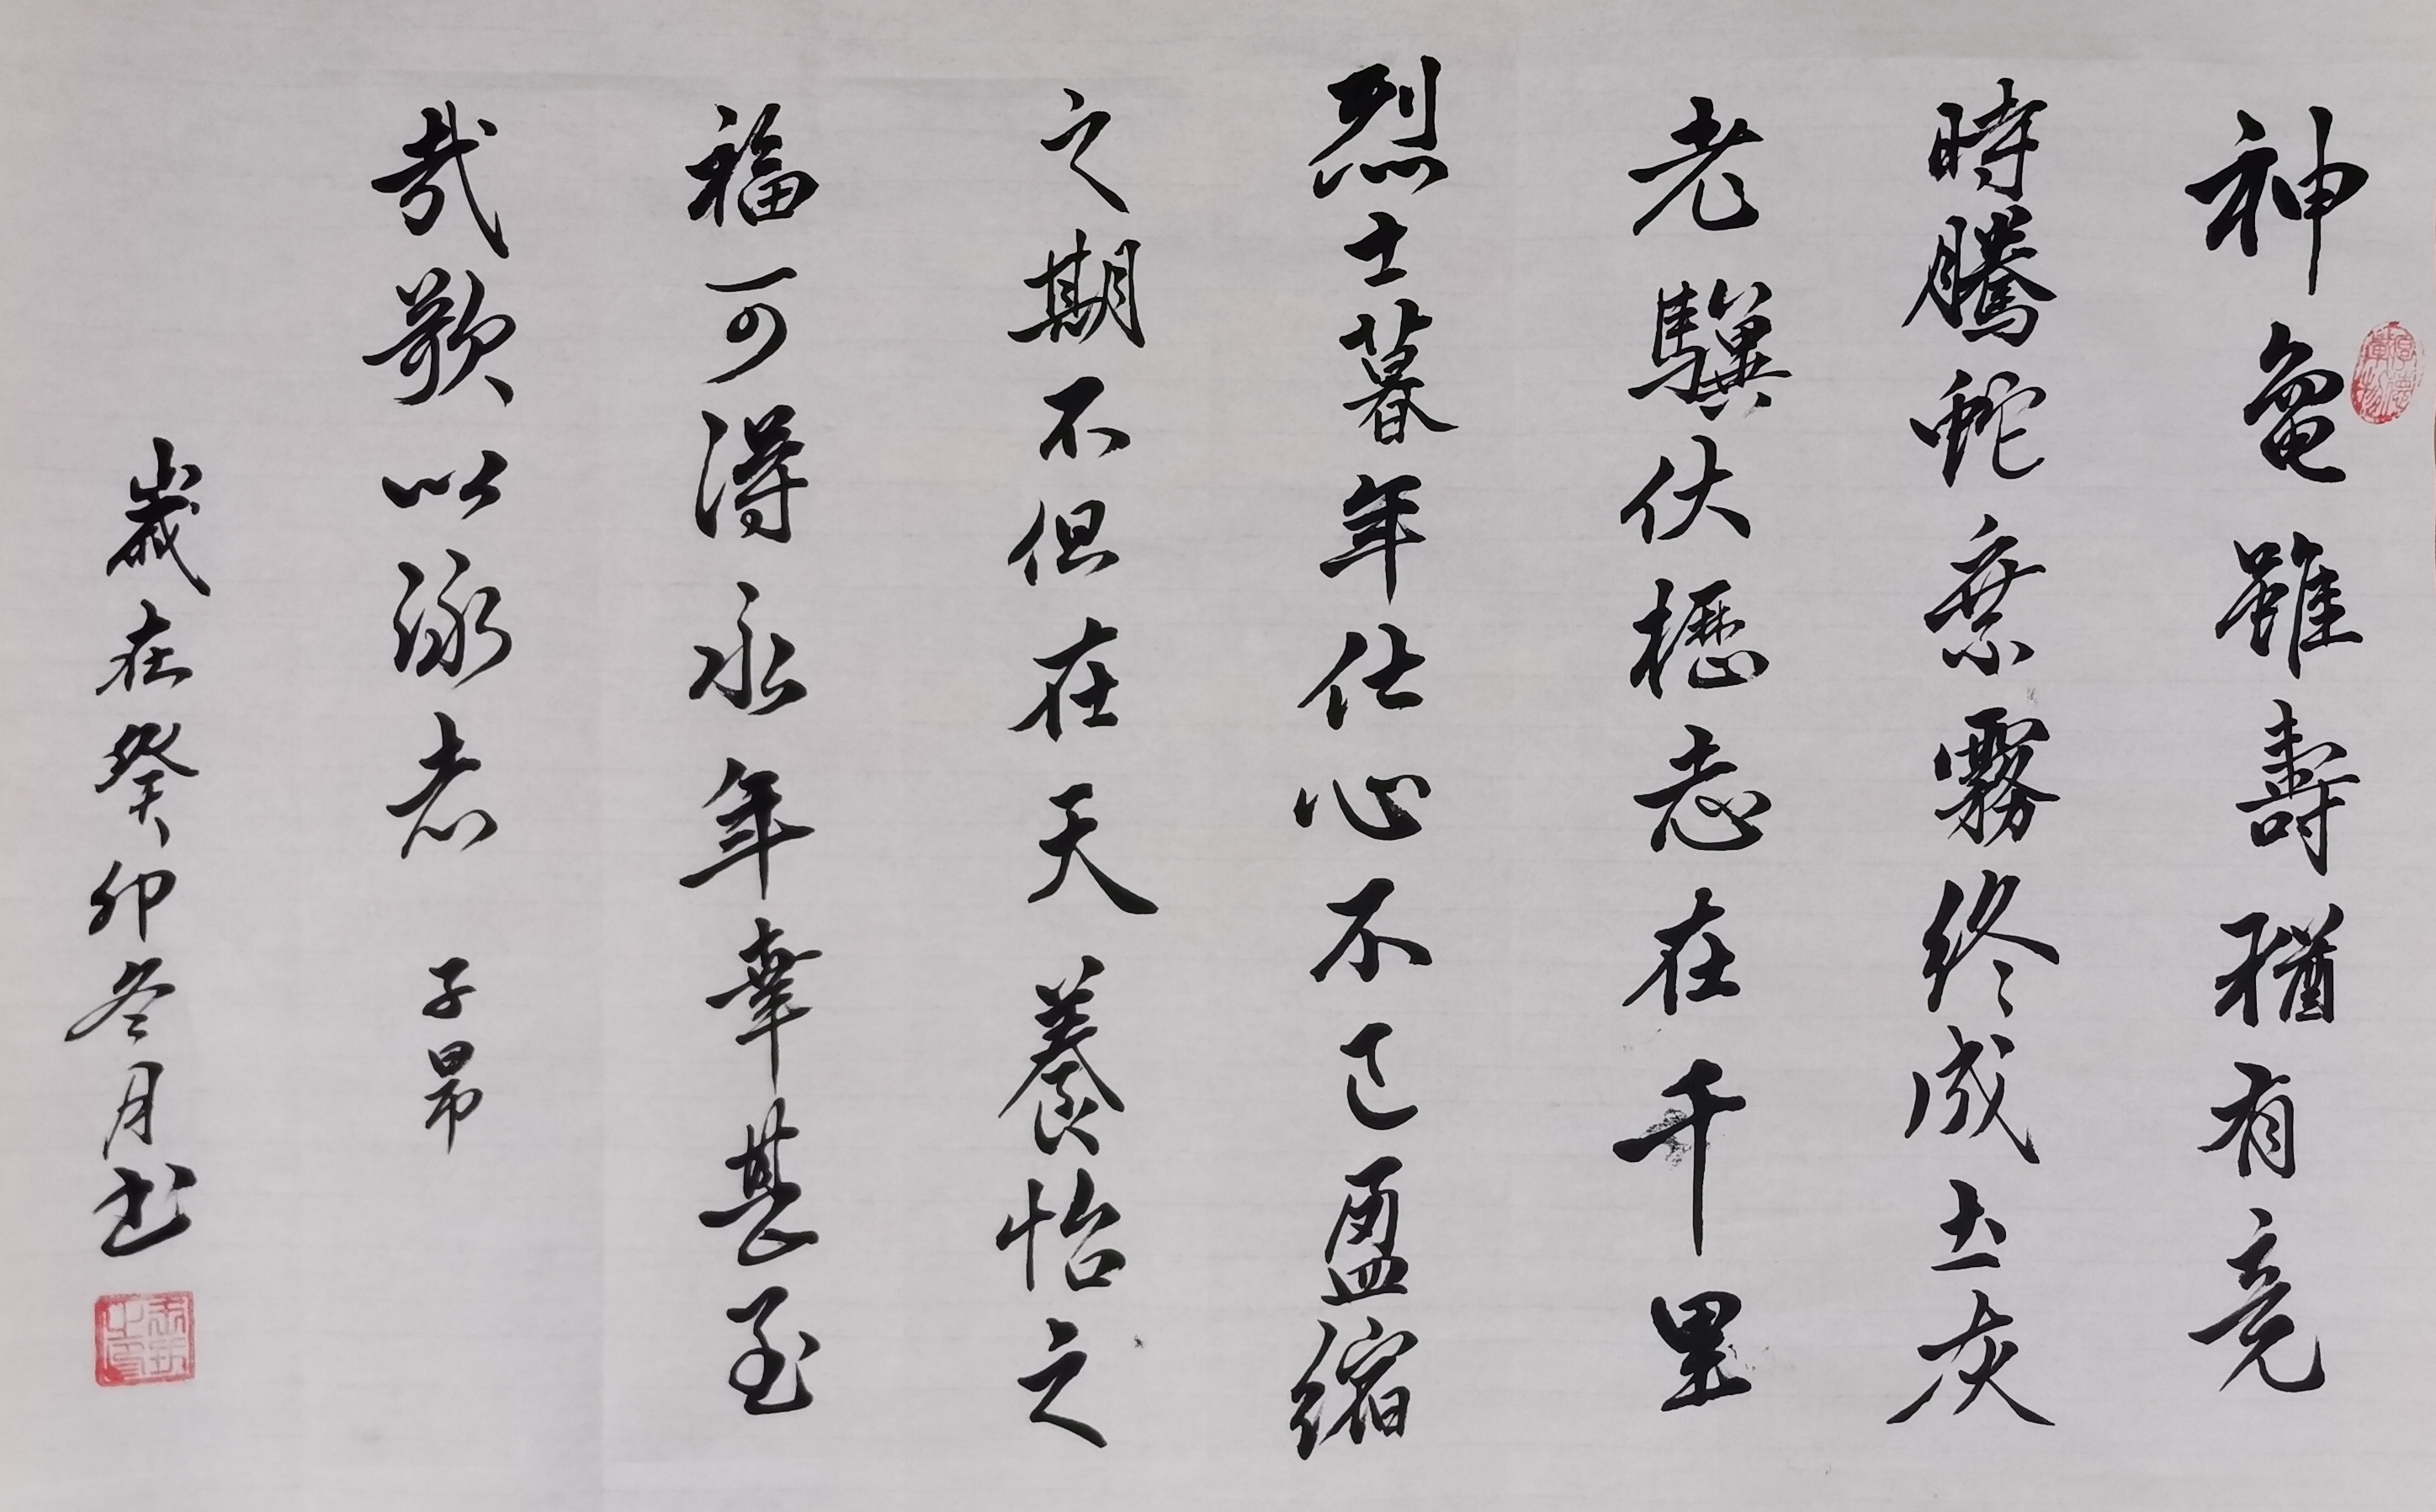 神龜雖壽猶有竟
時騰蛇乘霧終成土灰
老驥伏櫪志在千里
烈士暮年仕心不已盈縮
之期不但在天養怡之
福可得永年幸甚至
哉歌以詠志 子昂
歲在癸卯冬月书
厚德載物